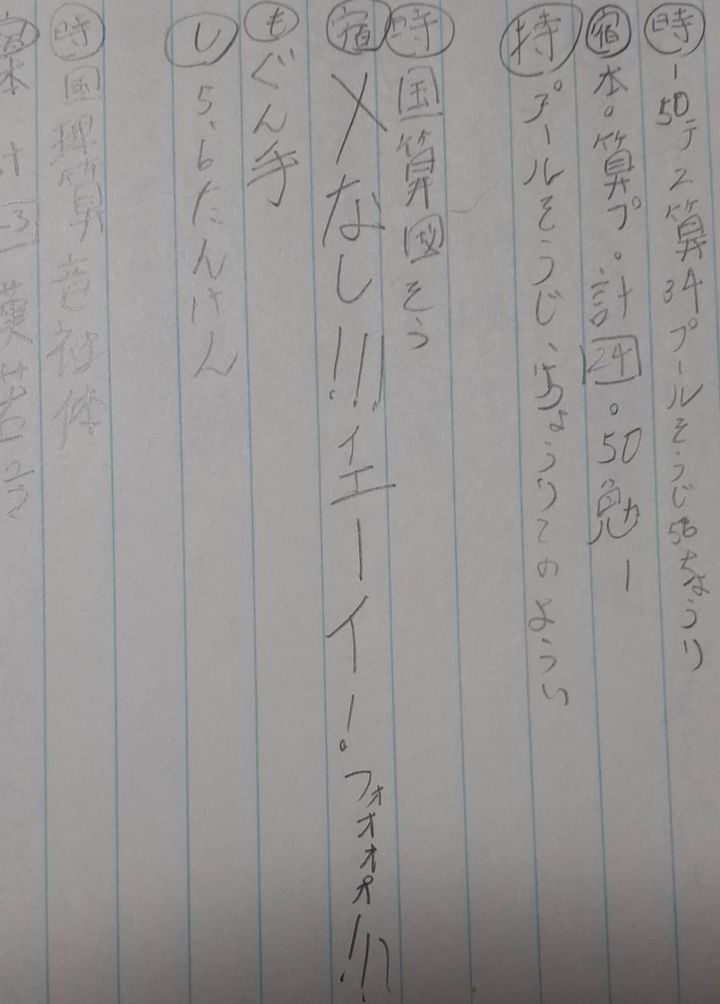 時 1 50テ 2算 34プールそうじ 56ちょうり
宿 本。算プ。計24。50勉一
持 プールそうじ、ちょうりてのようい
時 国算図そう
宿 メなし!!!イエーイ!フォォォォ!!!
も ぐん手
し 5.6たんけん
時 国理算音社体
宿 本